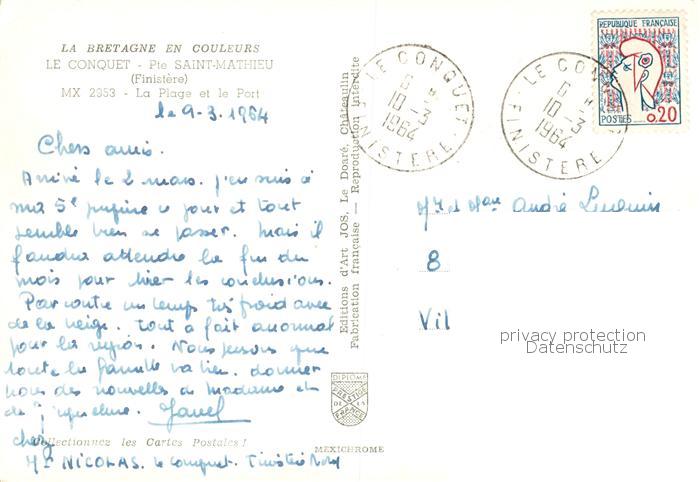 LA BRETAGNE EN COULEURS
LE CONQUET - Pte SAINT-MATHIEU
(Finistère)
MX 2953 - La Plage et le Port
le 9-3.1964
Chers amis.
Arrivé le 2 mars. j'en suis à
ma 5e piqûre ce jour et tout
semble bien se passer. Mais il
faudra attendre la fin du
mois pour tirer les conclusions.
Par contre un temps très froid avec
de la neige. tout à fait anormal
pour la région. Nous pensons que
toute la famille va bien. donner
nous des nouvelles de Madame et
de
chez
Collectionnez les Cartes Postales !
Mr NICOLAS. Le Conquet. Finistère Nord
Editions d'Art JOS. Le Doaré, Châteaulin
Fabrication française — Reproduction interdite
DIPLOME
PRESTIGE
DE LA
FRANCE
MEXICHROME
LE CONQUET
10-3
1964
FINISTERE
LE CON
10-3
1964
FINISTERE
REPUBLIQUE FRANÇAISE
POSTES
0,20
Mr et Mme André
8
Vil
privacy protection
Datenschutz